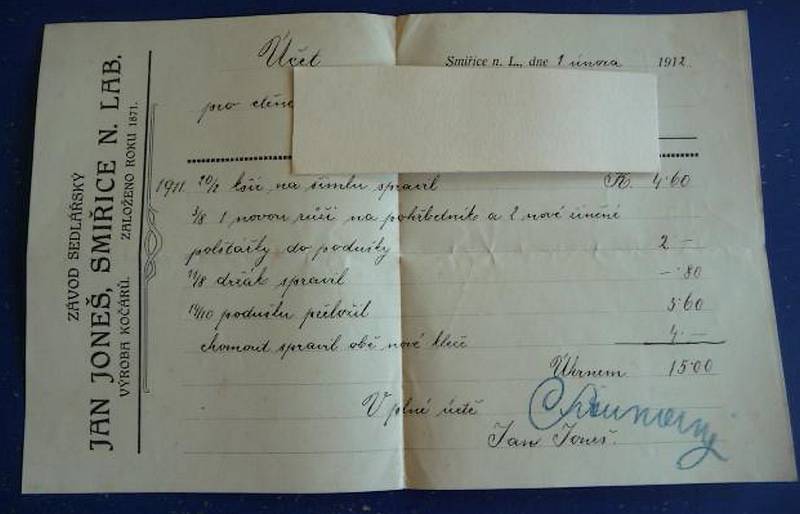 ZÁVOD SEDLÁŘSKÝ
JAN JONEŠ, SMIŘICE N. LAB.
VÝROBA KOČÁRŮ. ZALOŽENO ROKU 1871.
Účet
Smiřice n. L., dne 1 února 1912
pro
1911. 20/2 na spravil K. 4·60
3/8 1 novou růži na pohřebník a 2 nové
polštářky do podušky 2 –
11/8 držák spravil –·80
14/10 podušku přeložil 3·60
chomout spravil obě nové kleče 4·–
Úhrnem 15·00
V plné úctě
Jan Joneš.